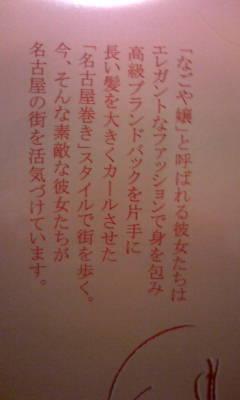 「なごや嬢」と呼ばれる彼女たちは
エレガントなファッションで身を包み
高級ブランドバックを片手に
長い髪を大きくカールさせた
「名古屋巻き」スタイルで街を歩く。
今、そんな素敵な彼女たちが
名古屋の街を活気づけています。